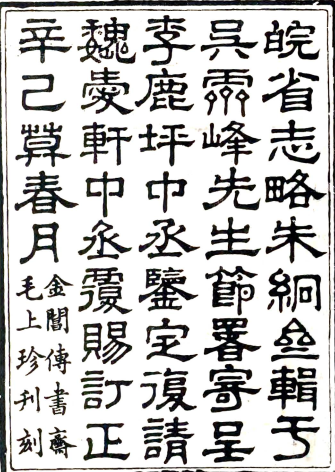 皖省志略朱絅亝輯于
吳霝峰先生節署寄呈
李鹿坪中丞鑒定復請
魏愛軒中丞覆賜訂正
辛己莫春月
金閶傳書齋
毛上珍刊刻